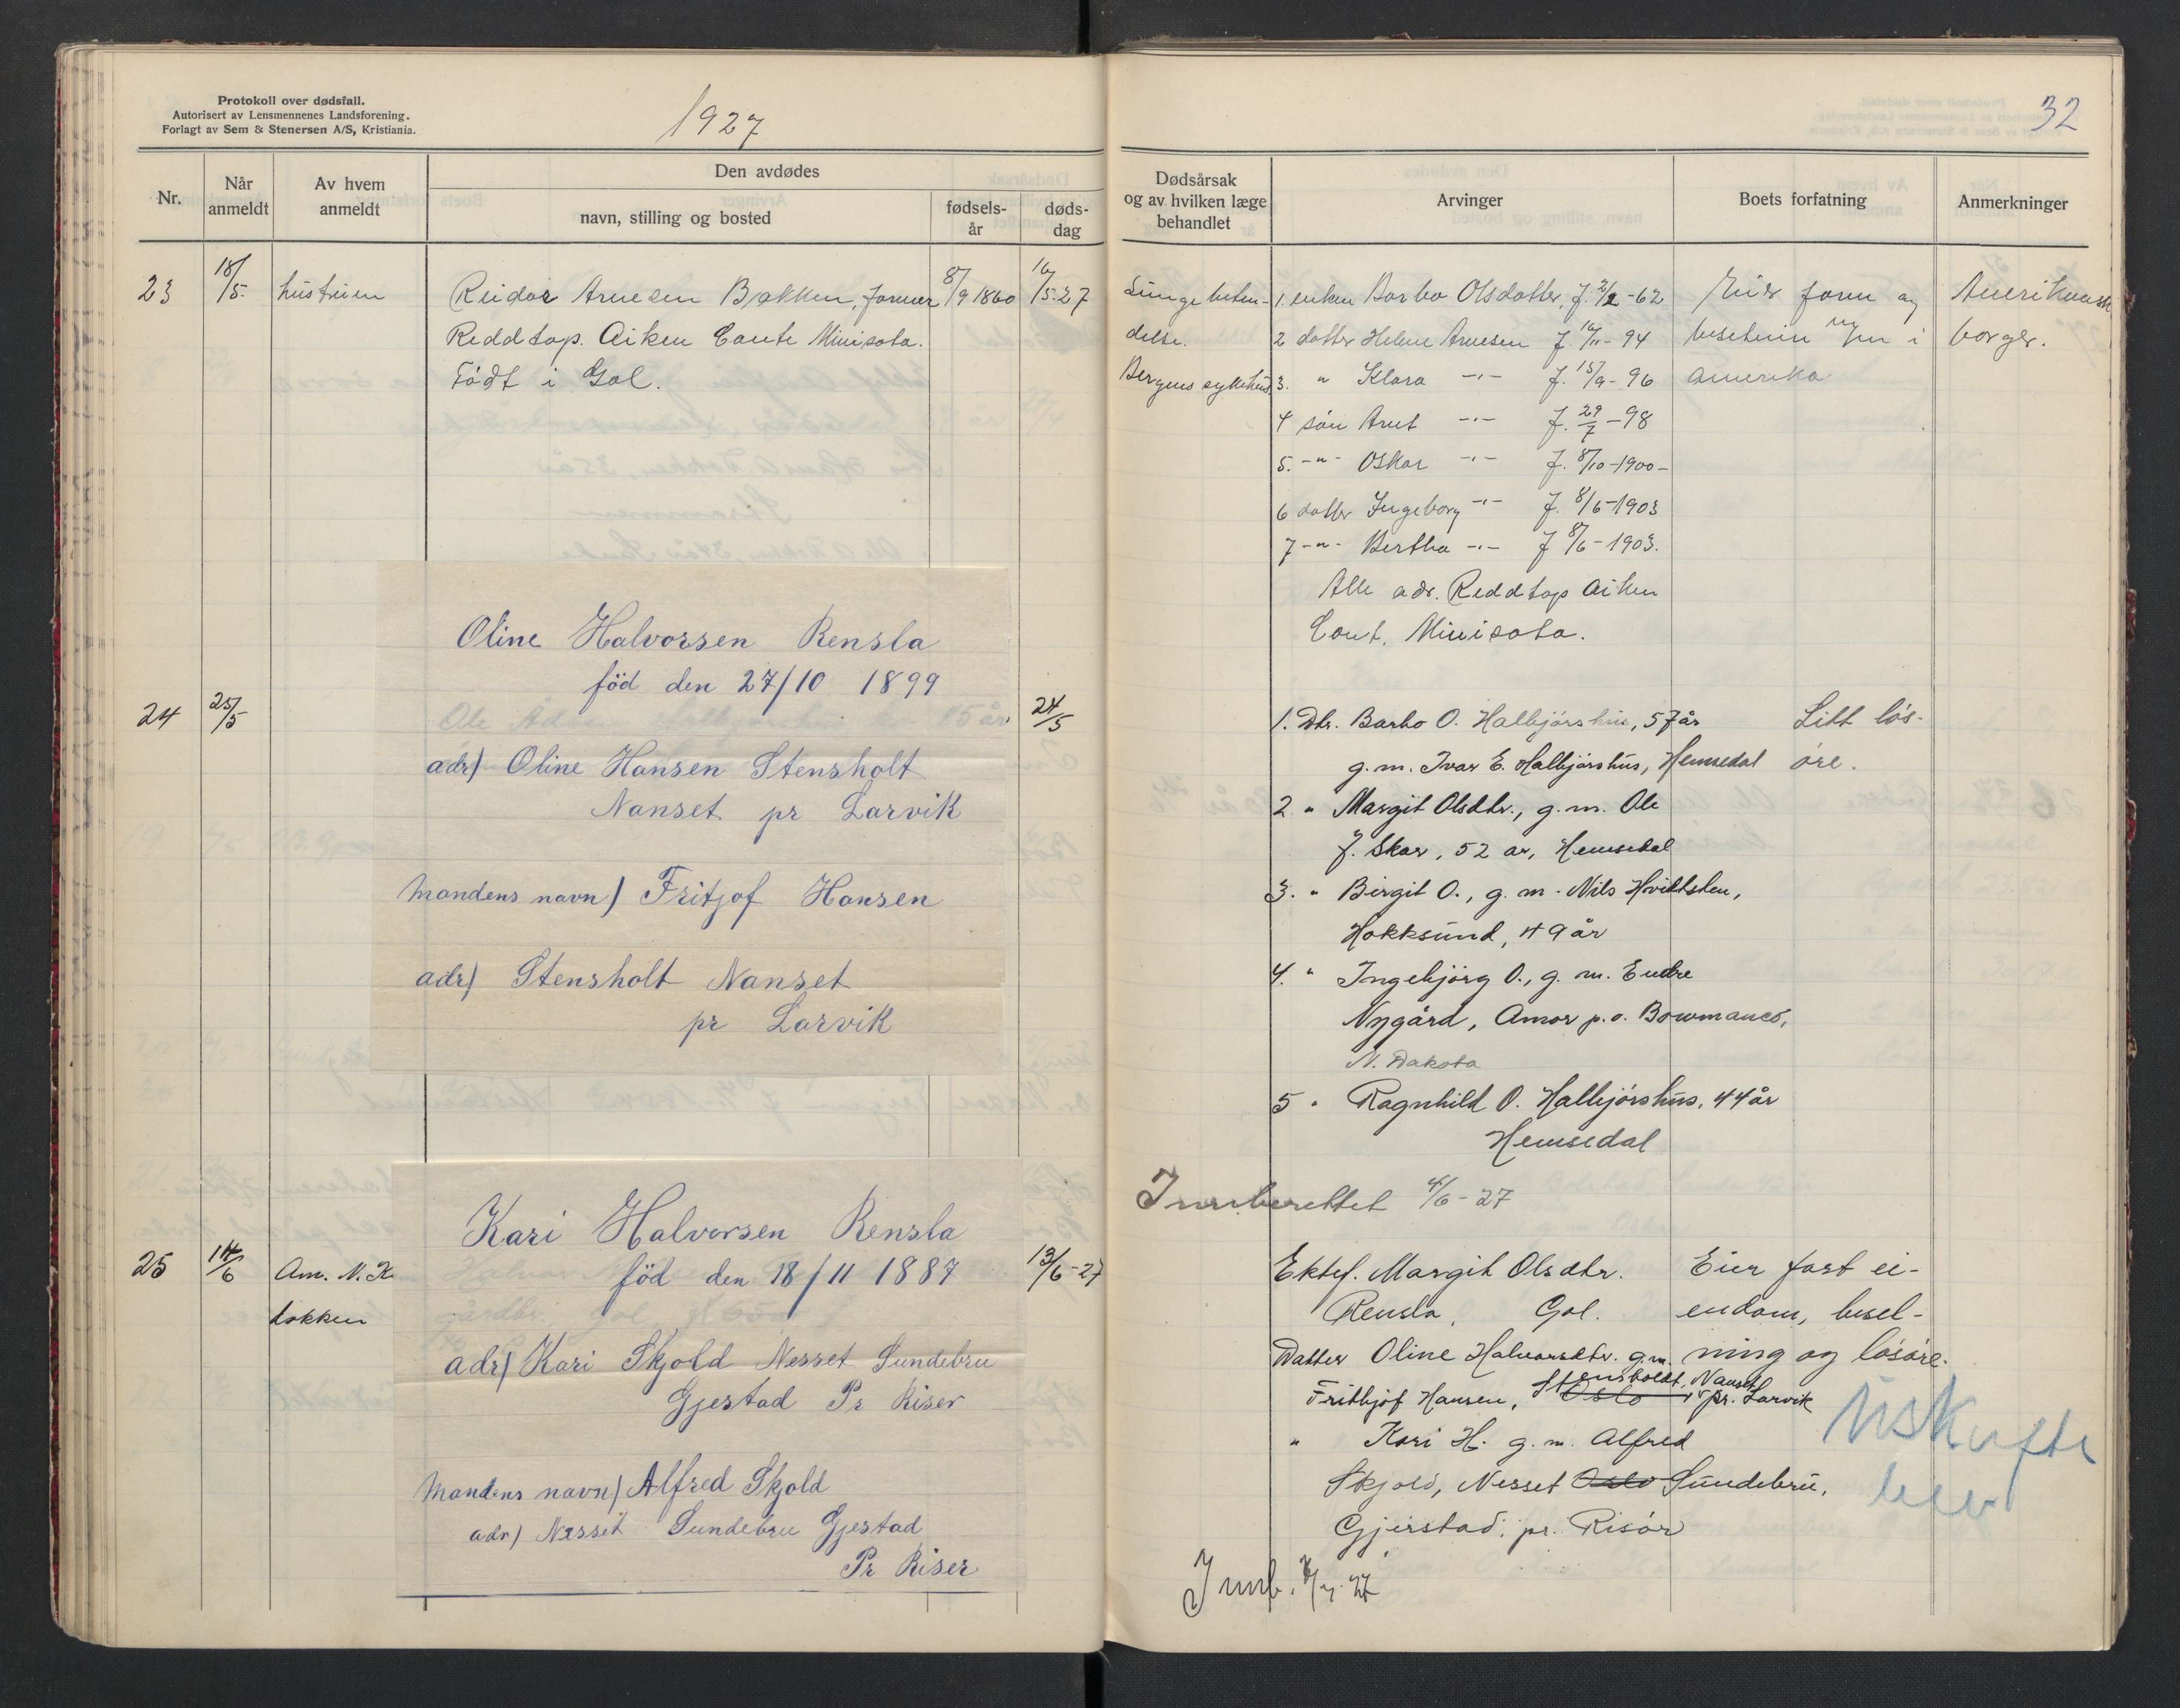 Protokoll over dødsfall.
Autorisert av Lensmennenes Landsforening.
Forlagt av Sem & Stenersen A/S, Kristiania.
1927
Nr.
Når anmeldt
Av hvem anmeldt
Den avdødes
navn, stilling og bosted
fødsels-år
døds-dag
23 18/5. hustruen Reidar Arnesen Bakken, farmer 8/9 1860 16/5 27
Reddtop. Aiken Counte Minisota.
Födt i Gol.
Oline Halvorsen Rensla
föd den 27/10 1899
24 25/5 24/5
adr) Oline Hansen Stensholt
Nanset pr Larvik
Mandens navn) Fritjof Hansen
adr) Stensholt Nanset
pr Larvik
Kari Halvorsen Rensla
föd den 18/11 1887
25 14/6 Am. N. K. 13/6-27
Løkken
adr) Kari Skjold Nesset Sundebru
Gjestad Pr Riser
Mandens navn) Alfred Skjold
adr) Nesset Sundebru Gjestad
Pr Riser
32
Dødsårsak
og av hvilken læge
behandlet
Arvinger
Boets forfatning
Anmerkninger
Lungebeten-
delse.
Bergens sykehus
1. enken Barbo Olsdatter, f. 2/2-62
2 datter Helene Arnesen f. 16/11-94
3. " Klara -"- f. 15/9-96
4 sön Arnt -"- f. 29/7-98
5. -"- Oskar -"- f. 8/10-1900-
6 datter Ingeborg -"- f. 8/6-1903
7 -"- Bertha -"- f 8/6-1903.
Alle adr. Reddtop Aiken
Cout. Minisota.
Eier farm og
besetning m/m i
Amerika
Amerikansk
borger.
1. Dtr. Barbo O. Halbjörshus, 57 år
g. m. Ivar E. Halbjörshus, Hemsedal
2 " Margit Olsdtr., g. m. Ole
J. Skar, 52 år, Hemsedal
3. " Birgit O., g. m. Nils Hvittsten,
Hokksund, 49 år
4. " Ingebjörg O., g. m. Endre
Nygård, Amor p.o. Bowmanco,
N. Dakota
5 " Ragnhild O. Halbjörshus, 44 år
Hemsedal
Litt lös-
öre.
Innberettet 4/6-27
Ektef. Margit Olsdtr.
Rensla, Gol.
Datter Oline Halvorsdtr. g.m.
Frithjof Hansen, Oslo Stensholdt, Nanset pr. Larvik
" Kari H. g. m. Alfred
Skjold, Nesset Oslo Sundebru,
Gjerstad, pr. Risör
Eier fast ei-
endom, besel-
ning og lösöre.
Uskifte
bev
Innb. 27